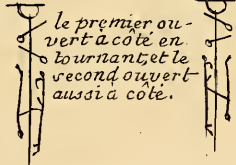 le premier ou-
vert à côté en
tournant, et le
second ouvert
aussi à côté.